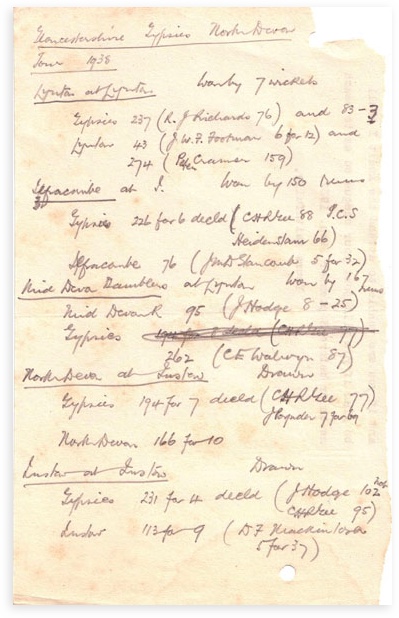 Gloucestershire Gypsies North Devon
Tour 1938
Lynton at Lynton Won by 7 wickets
Gypsies 237 (R. J Richards 76) and 83-3
Lynton 43 (J.W.F. Footman 6 for 12) and
274 (Peter Cramer 159)
Ilfracombe at I. Won by 150 runs
Gypsies 226 for 6 decld (CHR Gee 88 I.C.S
Heidenstam 66)
Ilfracombe 76 (JMD Stancomb 5 for 32)
Mid Devon Ramblers at Lynton Won by 167 runs
Mid Devon R 95 (J Hodge 8-25)
Gypsies 194 for 8 decld (CHR Gee 77)
262 (C E Walwyn 87)
North Devon at Instow Drawn
Gypsies 194 for 7 decld (CHR Gee 77)
J Poynder 7 for 69
North Devon 166 for 10
Instow at Instow Drawn
Gypsies 231 for 4 decld (J Hodge 102 not
CHR Gee 95)
Instow 113 for 9 (D F Mackintosh
5 for 37)